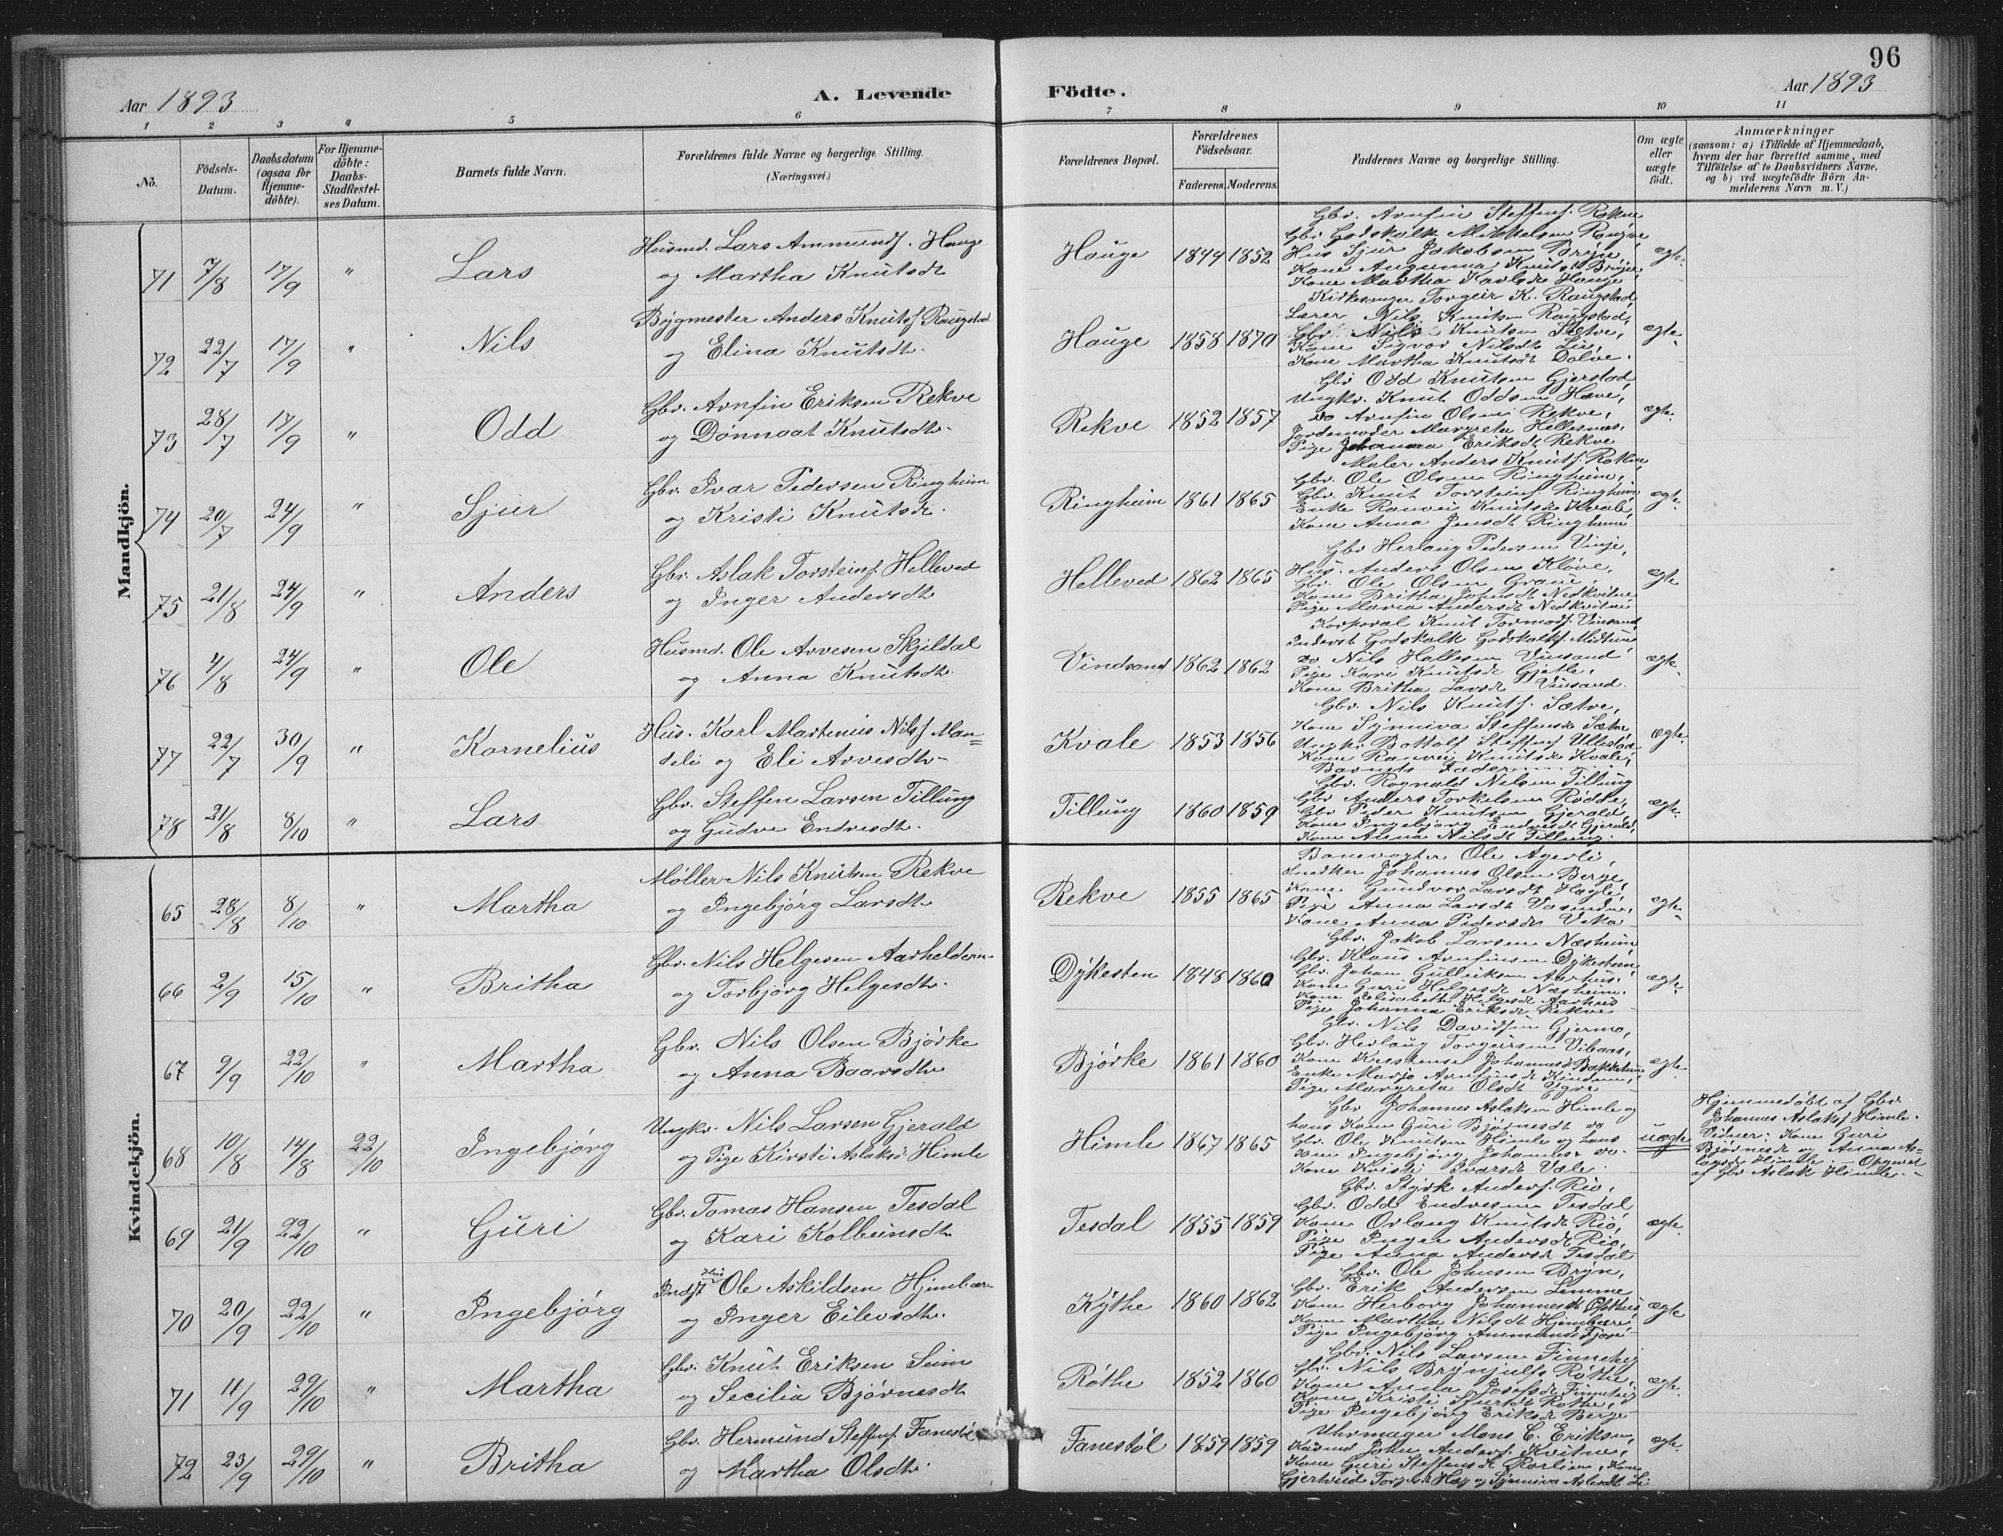 96
Aar 1893
A. Levende
Födte.
Aar 1893
1 2 3 4 5 6 7 8 9 10 11
No.
Födsels-
Datum.
Daabsdatum
(ogsaa for
Hjemme-
döbte).
For Hjemme-
döbte:
Daabs-
Stadfæstel-
ses Datum.
Barnets fulde Navn.
Forældrenes fulde Navne og borgerlige Stilling.
(Næringsvei.)
Forældrenes Bopæl.
Forældrenes
Födselsaar.
Faderens. Moderens.
Faddernes Navne og borgerlige Stilling.
Om ægte
eller
uægte
födt.
Anmærkninger
(saasom: a) i Tilfælde af Hjemmedaab,
hvem der har forrettet samme, med
Tilföielse af to Daabsvidners Navne,
og b) ved uægtefödte Börn An-
melderens Navn m. V.)
Mandkjön.
71 7/8 17/9 " Lars
Husmd. Lars Ammundf. Hauge
og Martha Knutsdt
Hauge 1844 1852
Gbr. Arnfin Steffensf. Rokne
Gbr. Godskalk Mikkelsen Rongve
Hus Sjur Jakobsen Bryn,
Kone Martha Karlsdt Hauge
ægte
72 22/7 17/9 " Nils
Bygmester Anders Knutsf Raugstad
og Elina Knutsdt.
Hauge 1858 1870
Kirkesanger Torgeir K. Raugstad
Lærer Nils Knutsen Raugstad,
Gbr. Nils Knutsen Sætve,
Kone Sigvor Nilsdt Lie,
Kone Martha Knutsdt Dolve.
ægte
73 28/7 17/9 " Odd
Gbr. Arnfin Eriksen Rekve
og Dønnaat Knutsdt.
Rekve 1852 1857
Gbr Odd Knutsen Gjerstad
Ungkr. Knut Oddsen Hæve,
do Arnfin Olsen Rekve,
Jordemoder Margreta Hellesnæs,
Pige Johanna Eriksdt Rekve
ægte
74 20/7 24/9 " Sjur
Gbr. Ivar Pedersen Ringheim
og Kristi Knutsdt.
Ringheim 1861 1865
Maler Anders Knutsf. Rokne
Gbr. Ole Olsen Ringheim,
Gbr. Knut Torsteinf. Ringheim
Enke Ranvei Knutsdt Kvale,
Kone Anna Jensdt Ringheim
ægte
75 21/8 24/9 " Anders
Gbr. Aslak Torsteinf. Helleved
og Inger Andersdt.
Helleved 1862 1865
Gbr Herlaug Pedersen Vinje,
Hus. Anders Olsen Kløve,
Gbr. Ole Olsen Grane,
Kone Britha Johnsdt Nedkvitne,
Pige Maria Andersdt Nedkvitne
ægte
76 4/8 24/9 " Ole
Husmd. Ole Arvesen Skjeldal
og Anna Knutsdt.
Vindsand 1862 1862
Korporal Knut Tormodf. Vinsand
Inderst Godskalk Godskalkf. Midtun
do Nils Hallesen Vinsand
Pige Kari Knutsdt Gjetle,
Kone Britha Larsdt Vinsand.
ægte
77 22/7 30/9 " Kornelius
Hus. Karl Martinius Nilsf Man=
deli og Eli Arvesdt.
Kvale 1853 1856
Gbr. Nils Knutsf. Sætve,
Kone Synniva Steffensdt Sætve,
Ungkr. Bottolf Steffensf Ullestad
Kone Ranvei Knutsdt Kvale,
Barnets Fader
ægte
78 21/8 8/10 " Lars
Gbr. Steffen Larsen Tillung
og Gudve Endresdt.
Tillung 1860 1859
Gbr. Rognald Nilsen Tillung
Gbr Anders Torkelsen Rødde,
Gbr Peder Knutsen Gjerald,
Kone Ingebjørg Endresdt Gjerald,
Kone Anna Nilsdt Tillung.
ægte
Kvindekjön.
65 28/8 8/10 " Martha
Møller Nils Knutsen Rekve
og Ingebjørg Larsdt.
Rekve 1855 1865
Banevogter Ole Agerli,
Snedker Johannes Olsen Berge,
Kone Gundvor Larsdt
Pige Anna Larsdt
Kone Anna Pedersdt Veka
ægte
66 2/9 15/10 " Britha
Gbr. Nils Helgesen
og Torbjørg Helgesdt.
Dykesten 1848 1860
Gbr. Jakob Larsen Næsheim
Gbr. Klaus Arnfinsen Dykesteen,
Gbr. Johan Gulleiksen Aarhus,
Kone Guri Helgesdt Næsheim.
Kone Elisabeth Helgesdt Aarhus
Pige Johanna Eriksdt Rekve
ægte
67 2/9 22/10 " Martha
Gbr. Nils Olsen Bjørke
og Anna Baarsdt.
Bjørke 1861 1860
Gbr. Nils Davidsen Gjermo,
Gbr. Herlaug Torgeirsen Vibaas,
Kone Kristense Johannesdt Bakketun
Enke Marjo Arnfinsdt Kinden,
Pige Margreta Olsdt Ygre
ægte
68 10/8 14/8 22/10 Ingebjørg
Ungkr. Nils Larsen Gjerald
og Pige Kirsti Aslaksdt Himle
Himle 1867 1865
Gbr Johannes Aslaksen Himle og
hans Kone Guri Bjørnesdt do
Gbr. Ole Knutsen Himle og hans
Kone Ingebjørg Johannesdt do.
Kone Kristi Ivarsdt Væle.
uægte
Hjemmedøbt af Gbr.
Johannes Aslaksf Himle.
Vidner: Kone Guri
Bjørnesdt og Anna As-
lagsdt Himle. - Opgivet
af Gbr Aslak Himle. -
69 21/9 22/10 " Guri
Gbr. Tomas Hansen Tesdal
og Kari Kolbeinsdt.
Tesdal 1855 1859
Gbr. Styrk Andersf. Rio,
Gbr. Odd Endresen Tesdal
Kone Orlaug Knutsdt Rio,
Pige Inger Andersdt Rio,
Pige Anna Andersdt Tesdal
ægte
70 20/9 22/10 " Ingebjørg
Indst Hus Ole Askildsen Himbær-
og Inger Eilevsdt.
Kythe 1860 1862
Gbr. Ole Johnsen Bryn,
Gbr. Erik Andersen Lemme
Kone Herborg Johannesdt
Kone Martha Nilsdt
Pige Ingebjørg
ægte
71 11/9 29/10 " Martha
Gbr. Knut Eriksen Seim
og Secilia Bjørnesdt
Röthe 1852 1860
Gbr. Nils Larsen
Gbr. Nils Brynjulfs Röthe,
Kone Anna Josefsdt
Kone Kristi Sjursdt Röthe,
Pige Ingebjørg Eriksdt Berge
ægte
72 23/9 29/10 " Britha
Gbr. Hermund Steffensf. Fanestøl
og Martha Olsdt.
Fanestøl 1859 1859
Uhrmager Mons C. Eriksen,
Husmd John Andersf. Kvitno,
Kone Guri Steffensdt Rørlien, Kone
Gjertrud og Synniva Aslaksdt Li
ægte